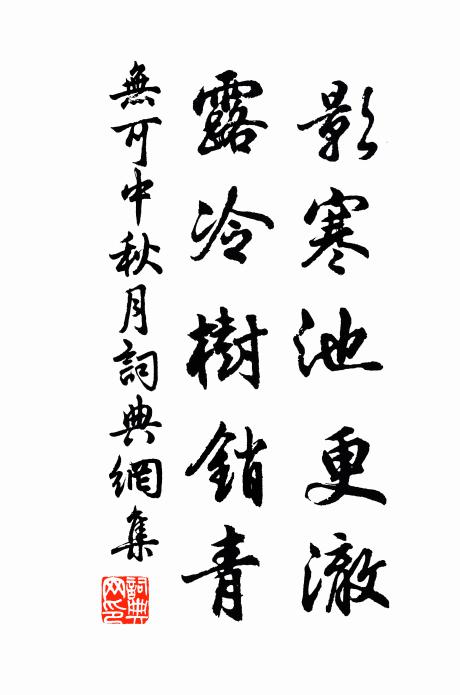 影寒池更澈
露冷樹銷青
無可中秋月詞典網集
詞典網印